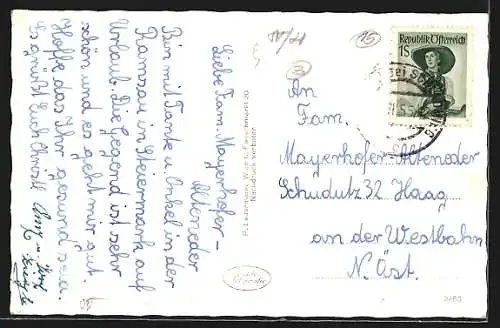 Liebe Fam. Mayerhofer-
Alteneder
Bin mit Tante u. Onkel in der
Ramsau in Steiermark auf
Urlaub. Die Gegend ist sehr
schön und es geht mir gut.
Hoffe das Ihr gesund seid.
Es grüßt Euch
P. Ledermann, Wien I., Fleischmarkt 20
Nachdruck verboten
Republik Österreich
1S
15
An
Fam.
Mayerhofer-Alteneder
Schudutz 32 Haag
an der Westbahn
N. Öst.